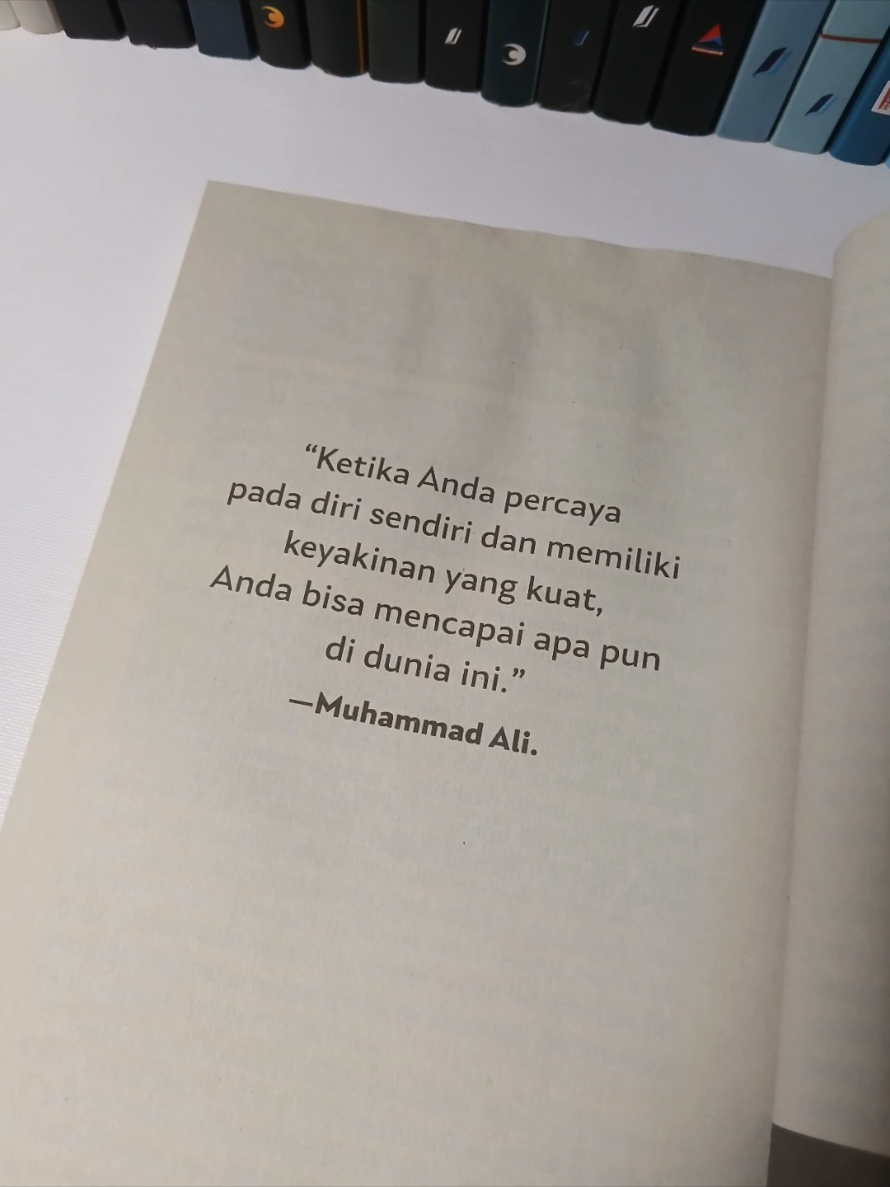 “Ketika Anda percaya
pada diri sendiri dan memiliki
keyakinan yang kuat,
Anda bisa mencapai apa pun
di dunia ini.”
—Muhammad Ali.